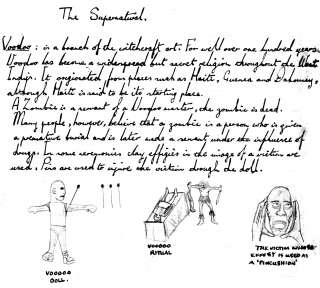 The Supernatural.
Voodoo: is a branch of the witchcraft art. For well over one hundred years
Voodoo has become a widespread but secret religion throughout the West
Indies. It originated from places such as Haiti, Guinea and Dahomey,
although Haiti is said to be its starting place.
A Zombie is a servant of a Voodoo master, the zombie is dead.
Many people, however, believe that a zombie is a person who is given
a premature burial and is later made a servant under the influence of
drugs. In some ceremonies clay effigies in the image of a victim are
used. Pins are used to injure the victim through the doll.
VOODOO
DOLL.
VOODOO
RITUAL
THE VICTIM WHOSE
EFFIGY IS USED AS
A 'PINCUSHION'